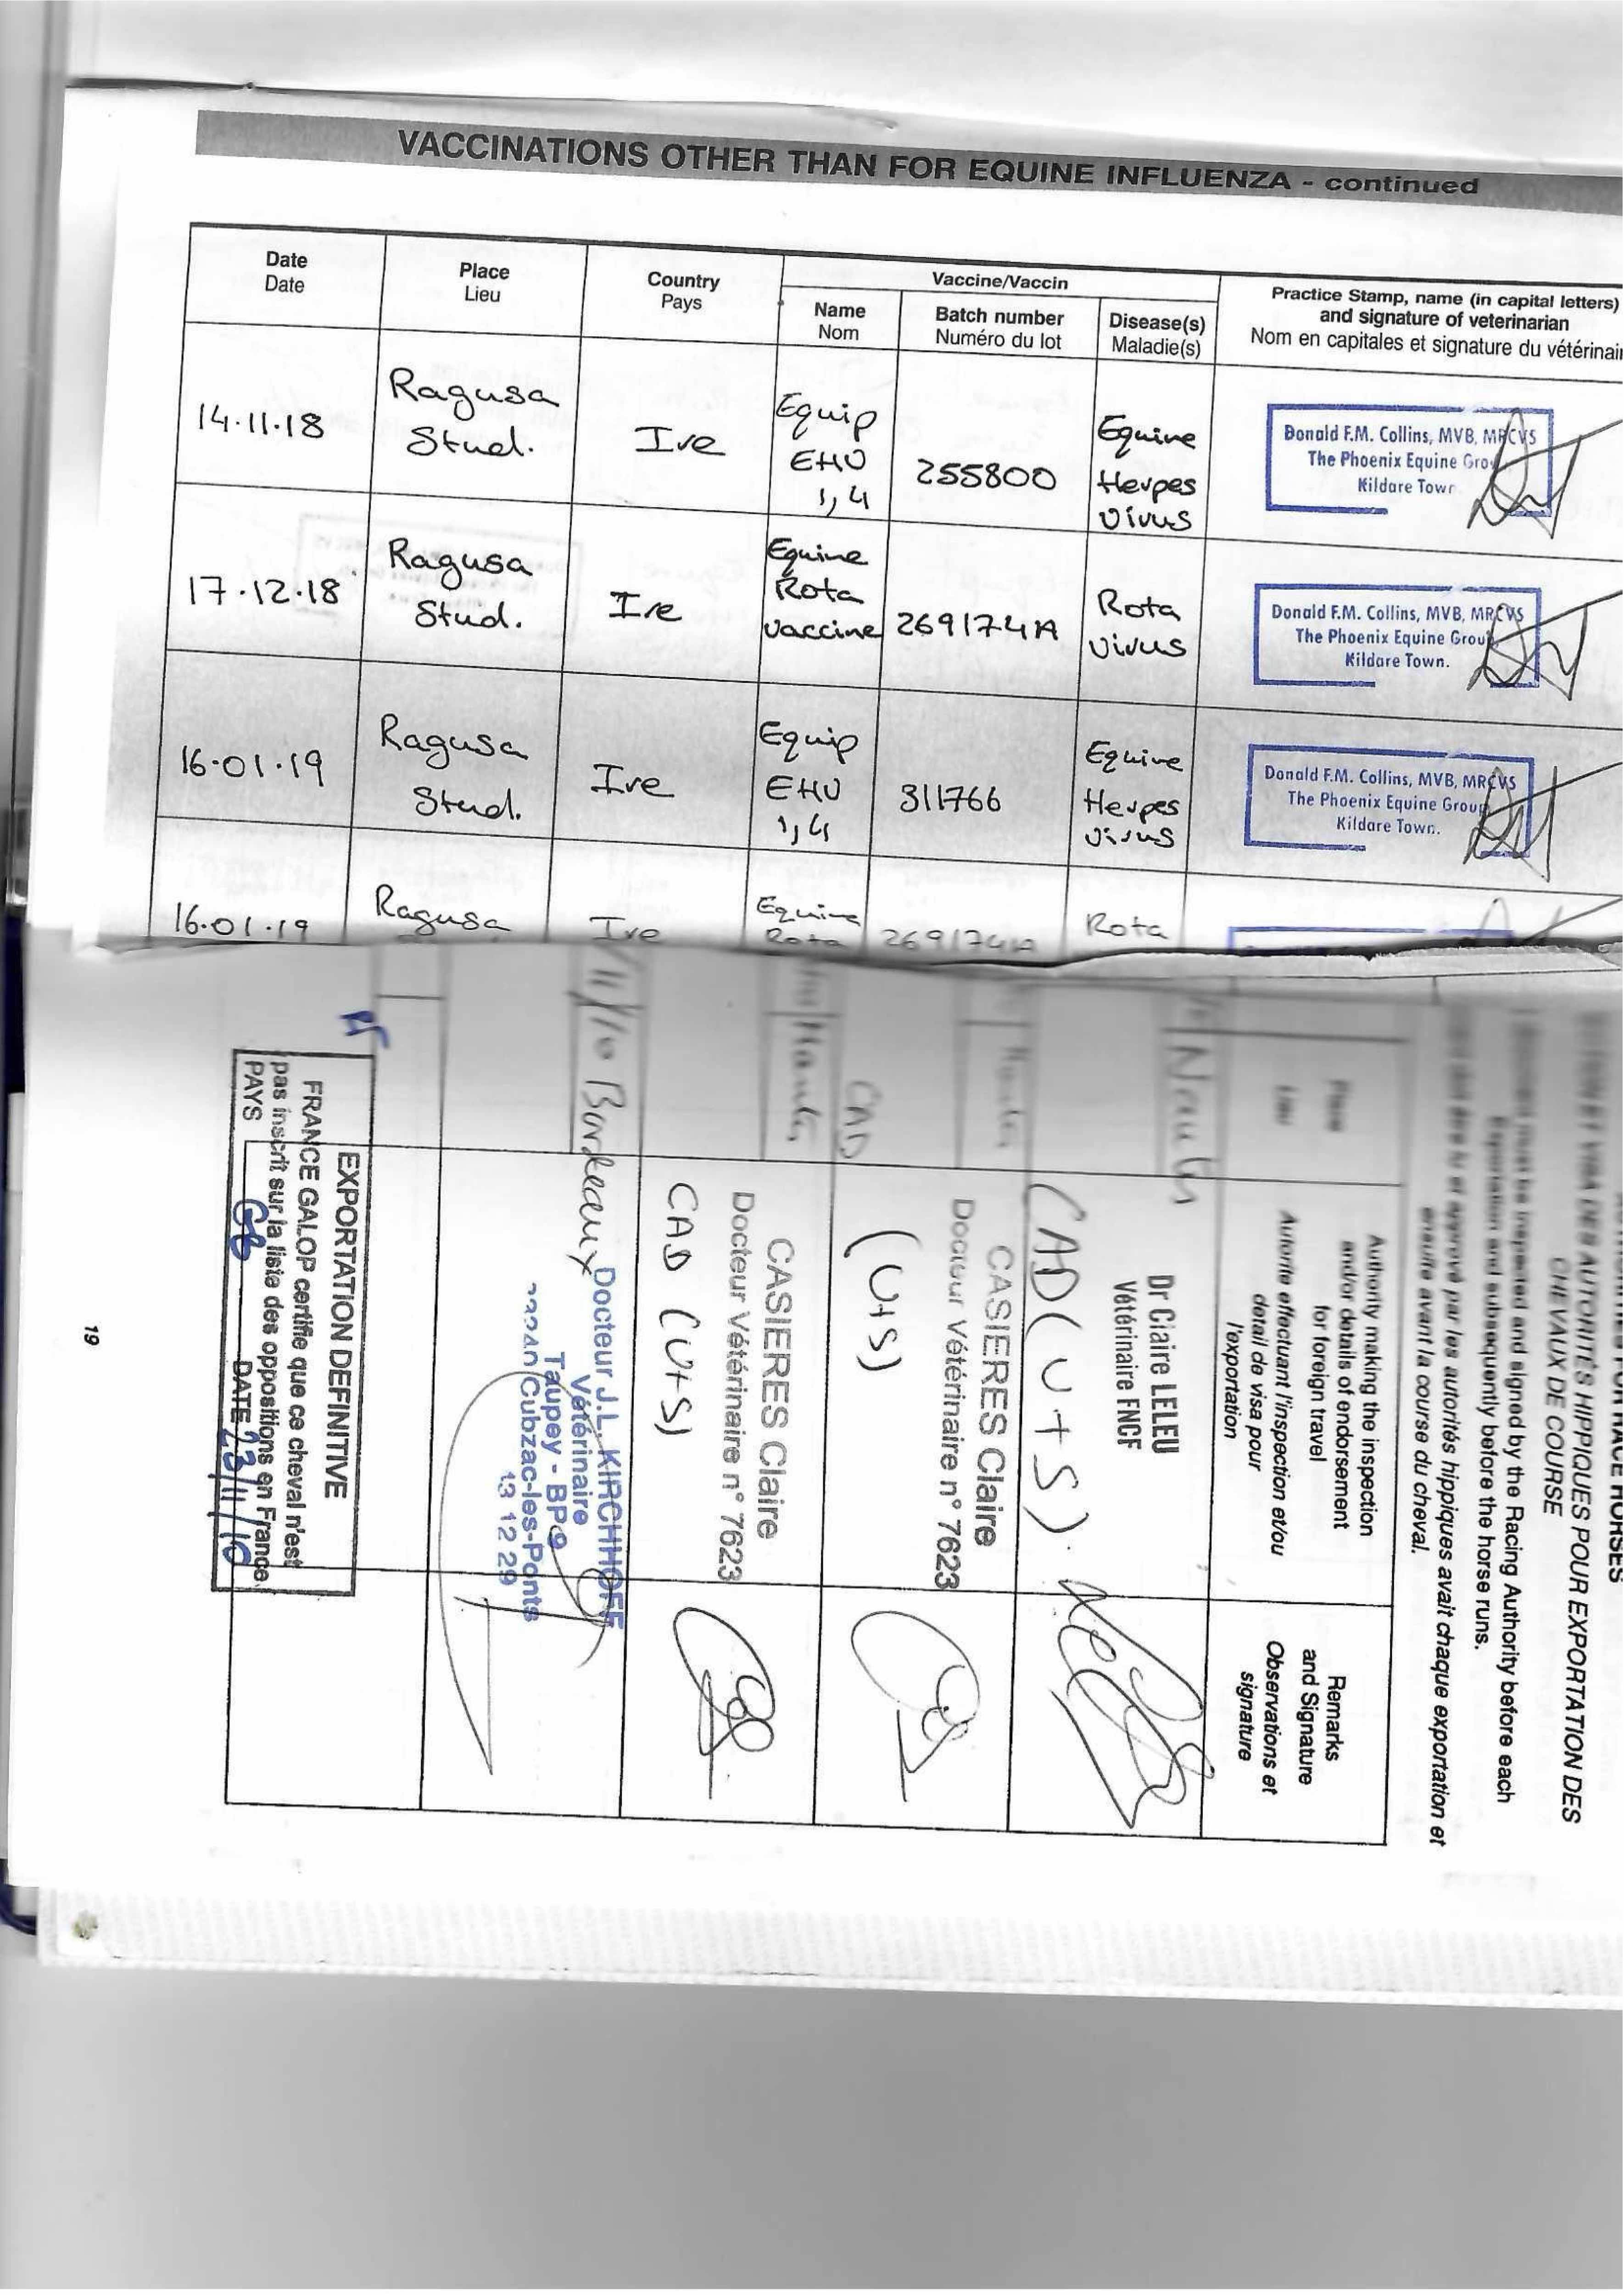 VACCINATIONS OTHER THAN FOR EQUINE INFLUENZA - continued
Date
Date
Place
Lieu
Country
Pays
Vaccine/Vaccin
Name
Nom
Batch number
Numéro du lot
Disease(s)
Maladie(s)
Practice Stamp, name (in capital letters)
and signature of veterinarian
Nom en capitales et signature du vétérinair
14.11.18
Ragusa
Stud.
Ire
Equip
EHV
1,4
255800
Equine
Herpes
Virus
Donald F.M. Collins, MVB, MRCVS
The Phoenix Equine Gro
Kildare Town
17.12.18
Ragusa
Stud.
Ire
Equine
Rota
vaccine
269174A
Rota
virus
Donald F.M. Collins, MVB, MRCVS
The Phoenix Equine Group
Kildare Town.
16.01.19
Ragusa
Stud.
Ire
Equip
EHV
1,4
311766
Equine
Herpes
virus
Donald F.M. Collins, MVB, MRCVS
The Phoenix Equine Group
Kildare Town.
16.01.19
Ragusa
Ire
Equine
Rota
269174A
Rota
VISA DES AUTORITÉS HIPPIQUES POUR EXPORTATION DES
CHEVAUX DE COURSE
must be inspected and signed by the Racing Authority before each
Exportation and subsequently before the horse runs.
et approuvé par les autorités hippiques avait chaque exportation et
ensuite avant la course du cheval.
Place
Lieu
Authority making the inspection
and/or details of endorsement
for foreign travel
Autorite effectuant l'inspection et/ou
detail de visa pour
l'exportation
Remarks
and Signature
Observations et
signature
Dr Claire LELEU
Vétérinaire FNCF
CAD (U+S).
CASIERES Claire
Docteur Vétérinaire n° 7623
CAD
(U+S)
CASIERES Claire
Docteur Vétérinaire n° 7623
CAD (U+S)
/11/10 Bordeaux
Docteur J.L. KIRCHHOFF
Vétérinaire
Taupey - BP 9
Cubzac-les-Ponts
43 12 29
EXPORTATION DEFINITIVE
FRANCE GALOP certifie que ce cheval n'est
pas inscrit sur la liste des oppositions en France.
PAYS GB DATE 23/11/10
19